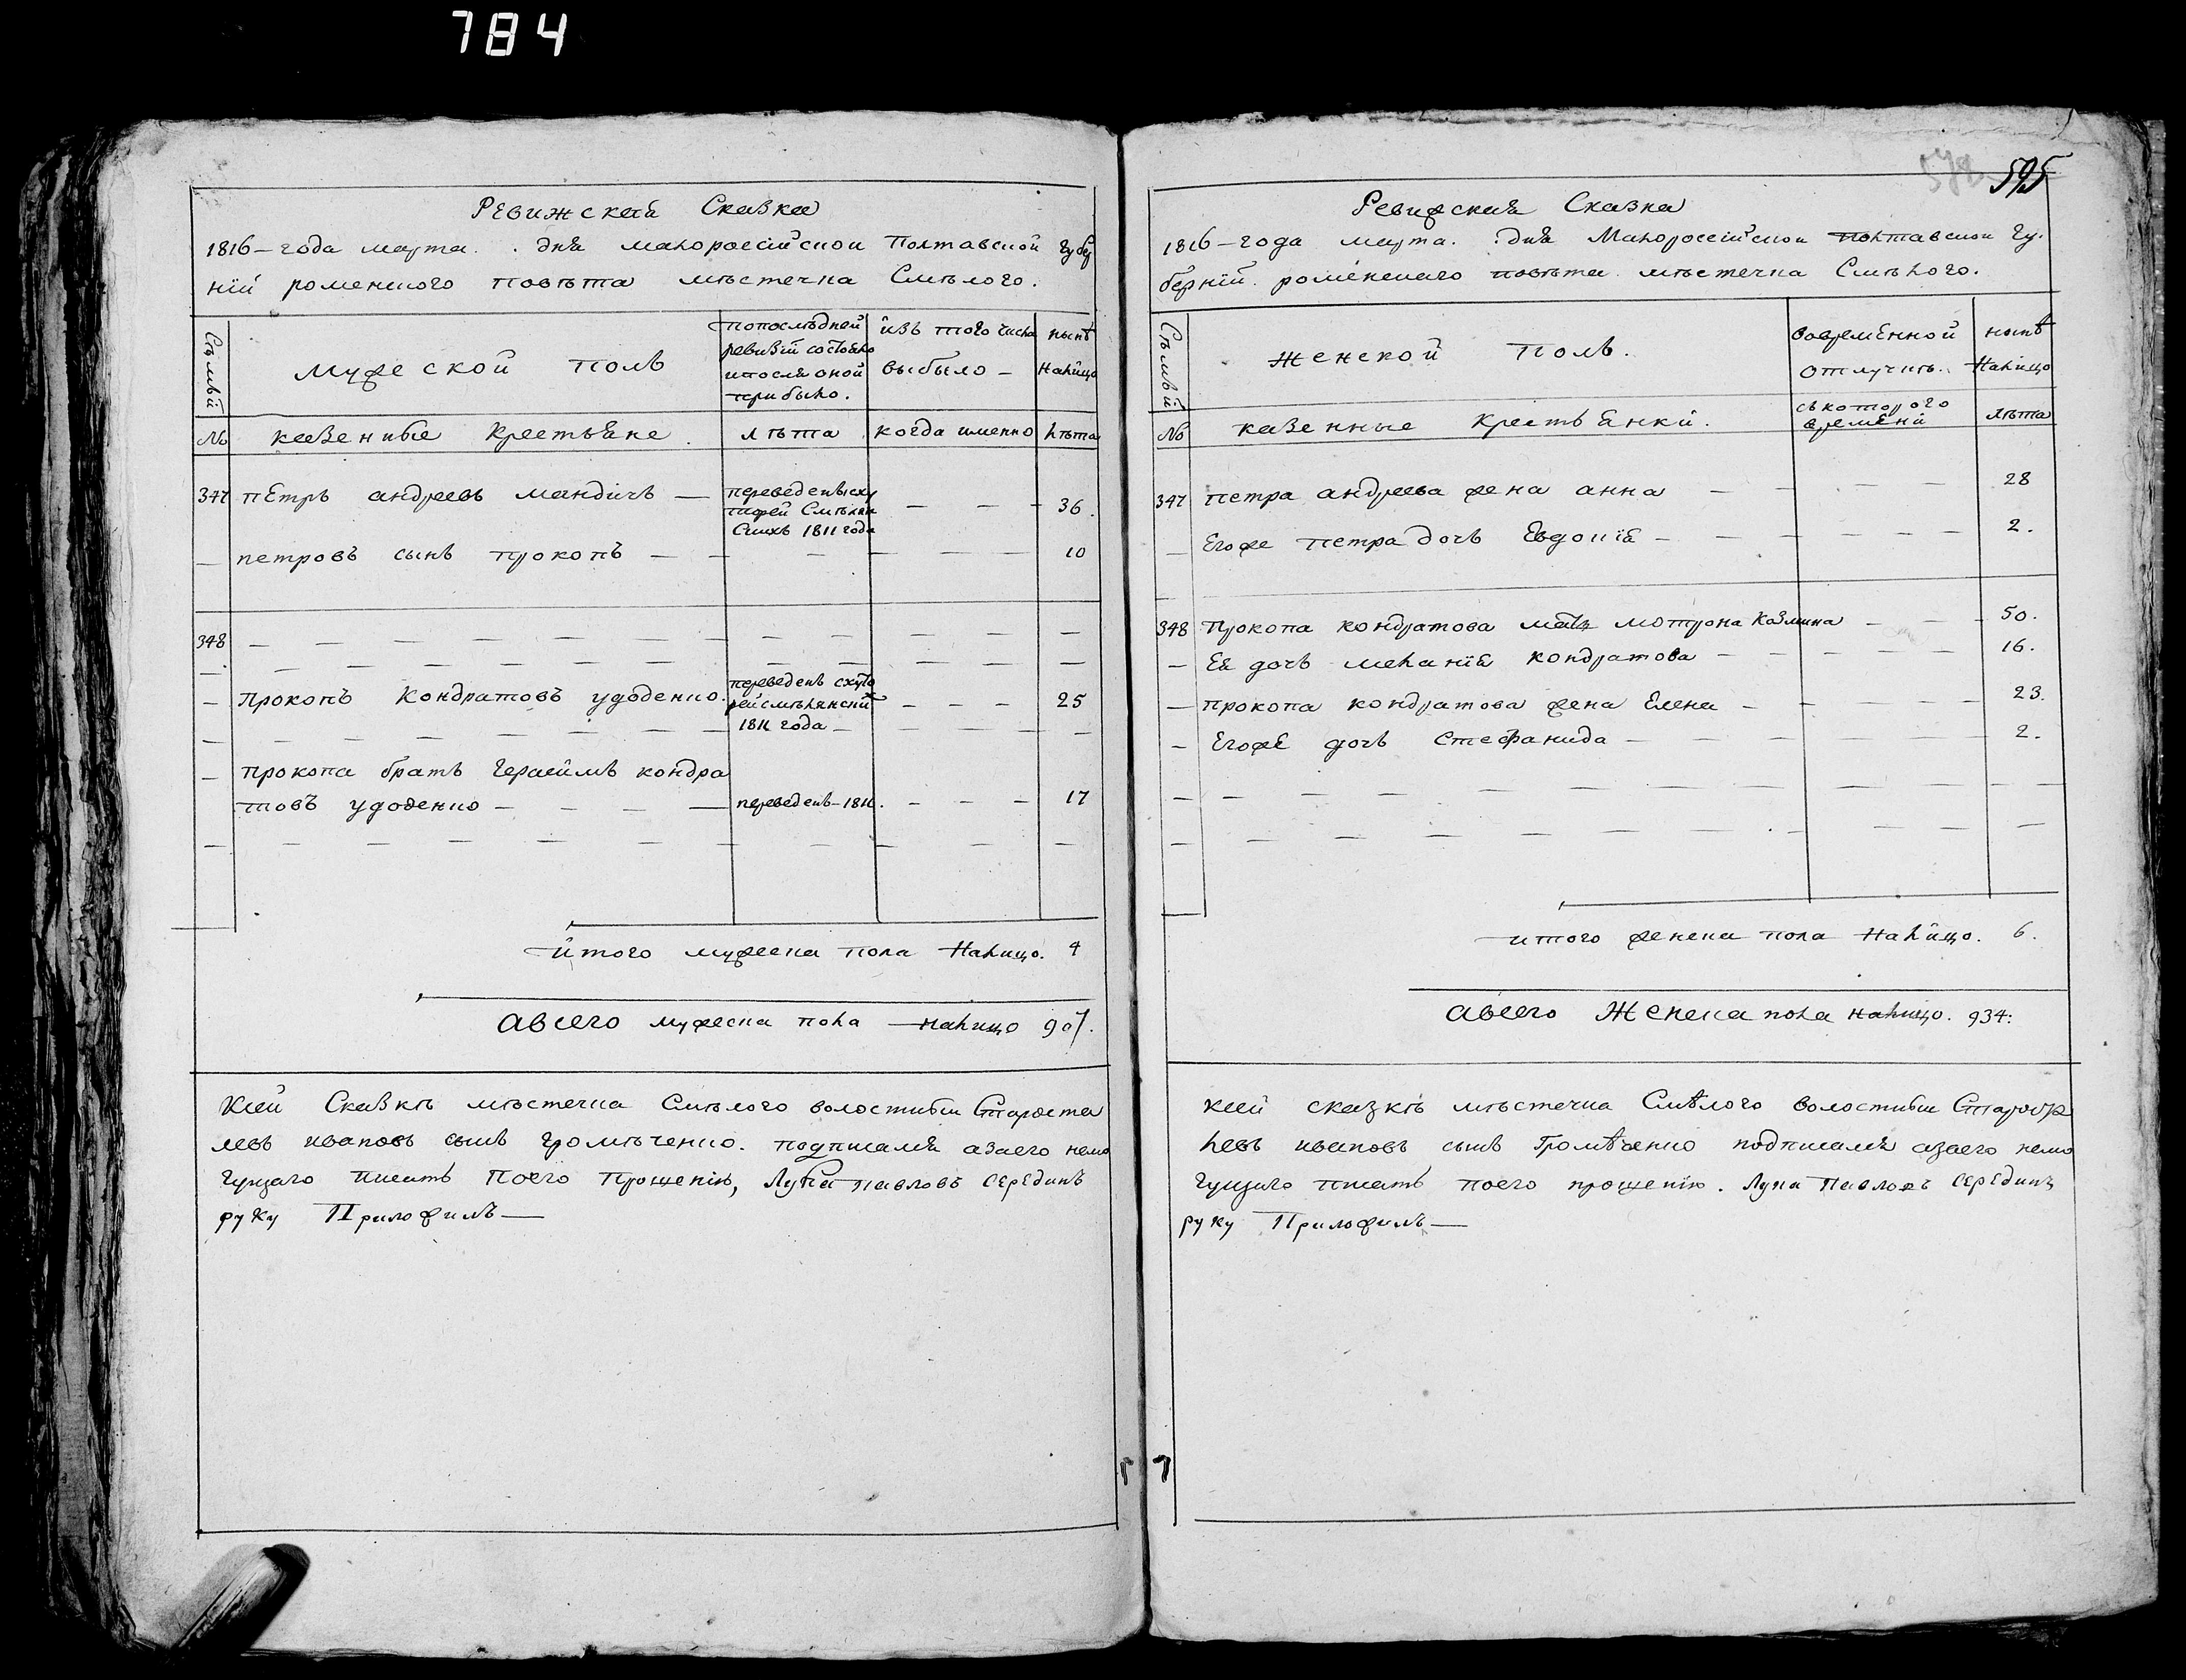 784
Ревижская Сказка
1816 – года марта . дня малороссійской Полтавской губер
ніи роменского повѣта мѣстечка Смѣлого.
Сѣмьи
мужеской полъ
попослѣдней
ревизіи состояло
ипослѣ оной
прибыло.
изъ того числа
выбыло –
нынѣ
Налицо
№ казенные Крестьяне. лѣта когда именно лѣта
347 петръ андреевъ мандичъ — переведенъ сху
торей Смѣлян
скихъ 1811 года — — — 36.
— петровъ сынъ прокопъ — — — — — — 10
348 — — — — — — — — — — — —
— — — — — — — — — — — —
— Прокопъ Кондратовъ удоденко. переведенъ схуто
рей смѣлянскихъ
1811 года — — — — 25
— — — — — — — — — — — —
— прокопа братъ Герасимъ кондра
товъ удоденко — — — — переведенъ – 1811. — — — 17
— — — — — — — — — — — —
итого мужеска пола Налицо. 4
авсего мужеска пола налицо 907.
Ксей Сказкѣ мѣстечка Смѣлого волостный Староста
левъ ивановъ сынъ громѣченко. подписался азаего немо
гущаго писать Поего Прошенію, Лука павловъ Серединъ
руку Приложилъ —
595
Ревижская Сказка
1816 – года марта. дня Малороссійской полтавской гу.
берніи роменскаго повѣта мѣстечка Смѣлого.
Сѣмьи
Женской Полъ.
вовременной
отлучкѣ.
нынѣ
Налицо
№ казенные Крестьянки. съкоторого
времени лѣта
347 петра андреева жена анна — — — — 28
— Егоже петра дочь Евдокія — — — — — 2.
348 Прокопа кондратова мать мотрона Казмина — — — 50.
— Ея дочь меланія кондратова — — — — — 16.
— прокопа кондратова жена Елена — — — — — 23.
— Егоже дочь Стефанида — — — — — 2.
— — — — — — — — — — — —
— — — — — — — — — — — —
итого женска пола Налицо. 6.
авсего Женска пола налицо. 934:
ксей сказкѣ мѣстечка Смѣлого волостный Староста
левъ ивановъ сынъ Громѣченко подписался азаего немо
гущаго писать поего прошенію. Лука Павловъ Серединъ
руку Приложилъ —